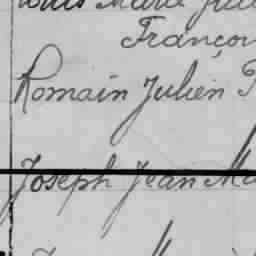 Louis Marie
Françoi
Romain Julien
Joseph Jean Ma